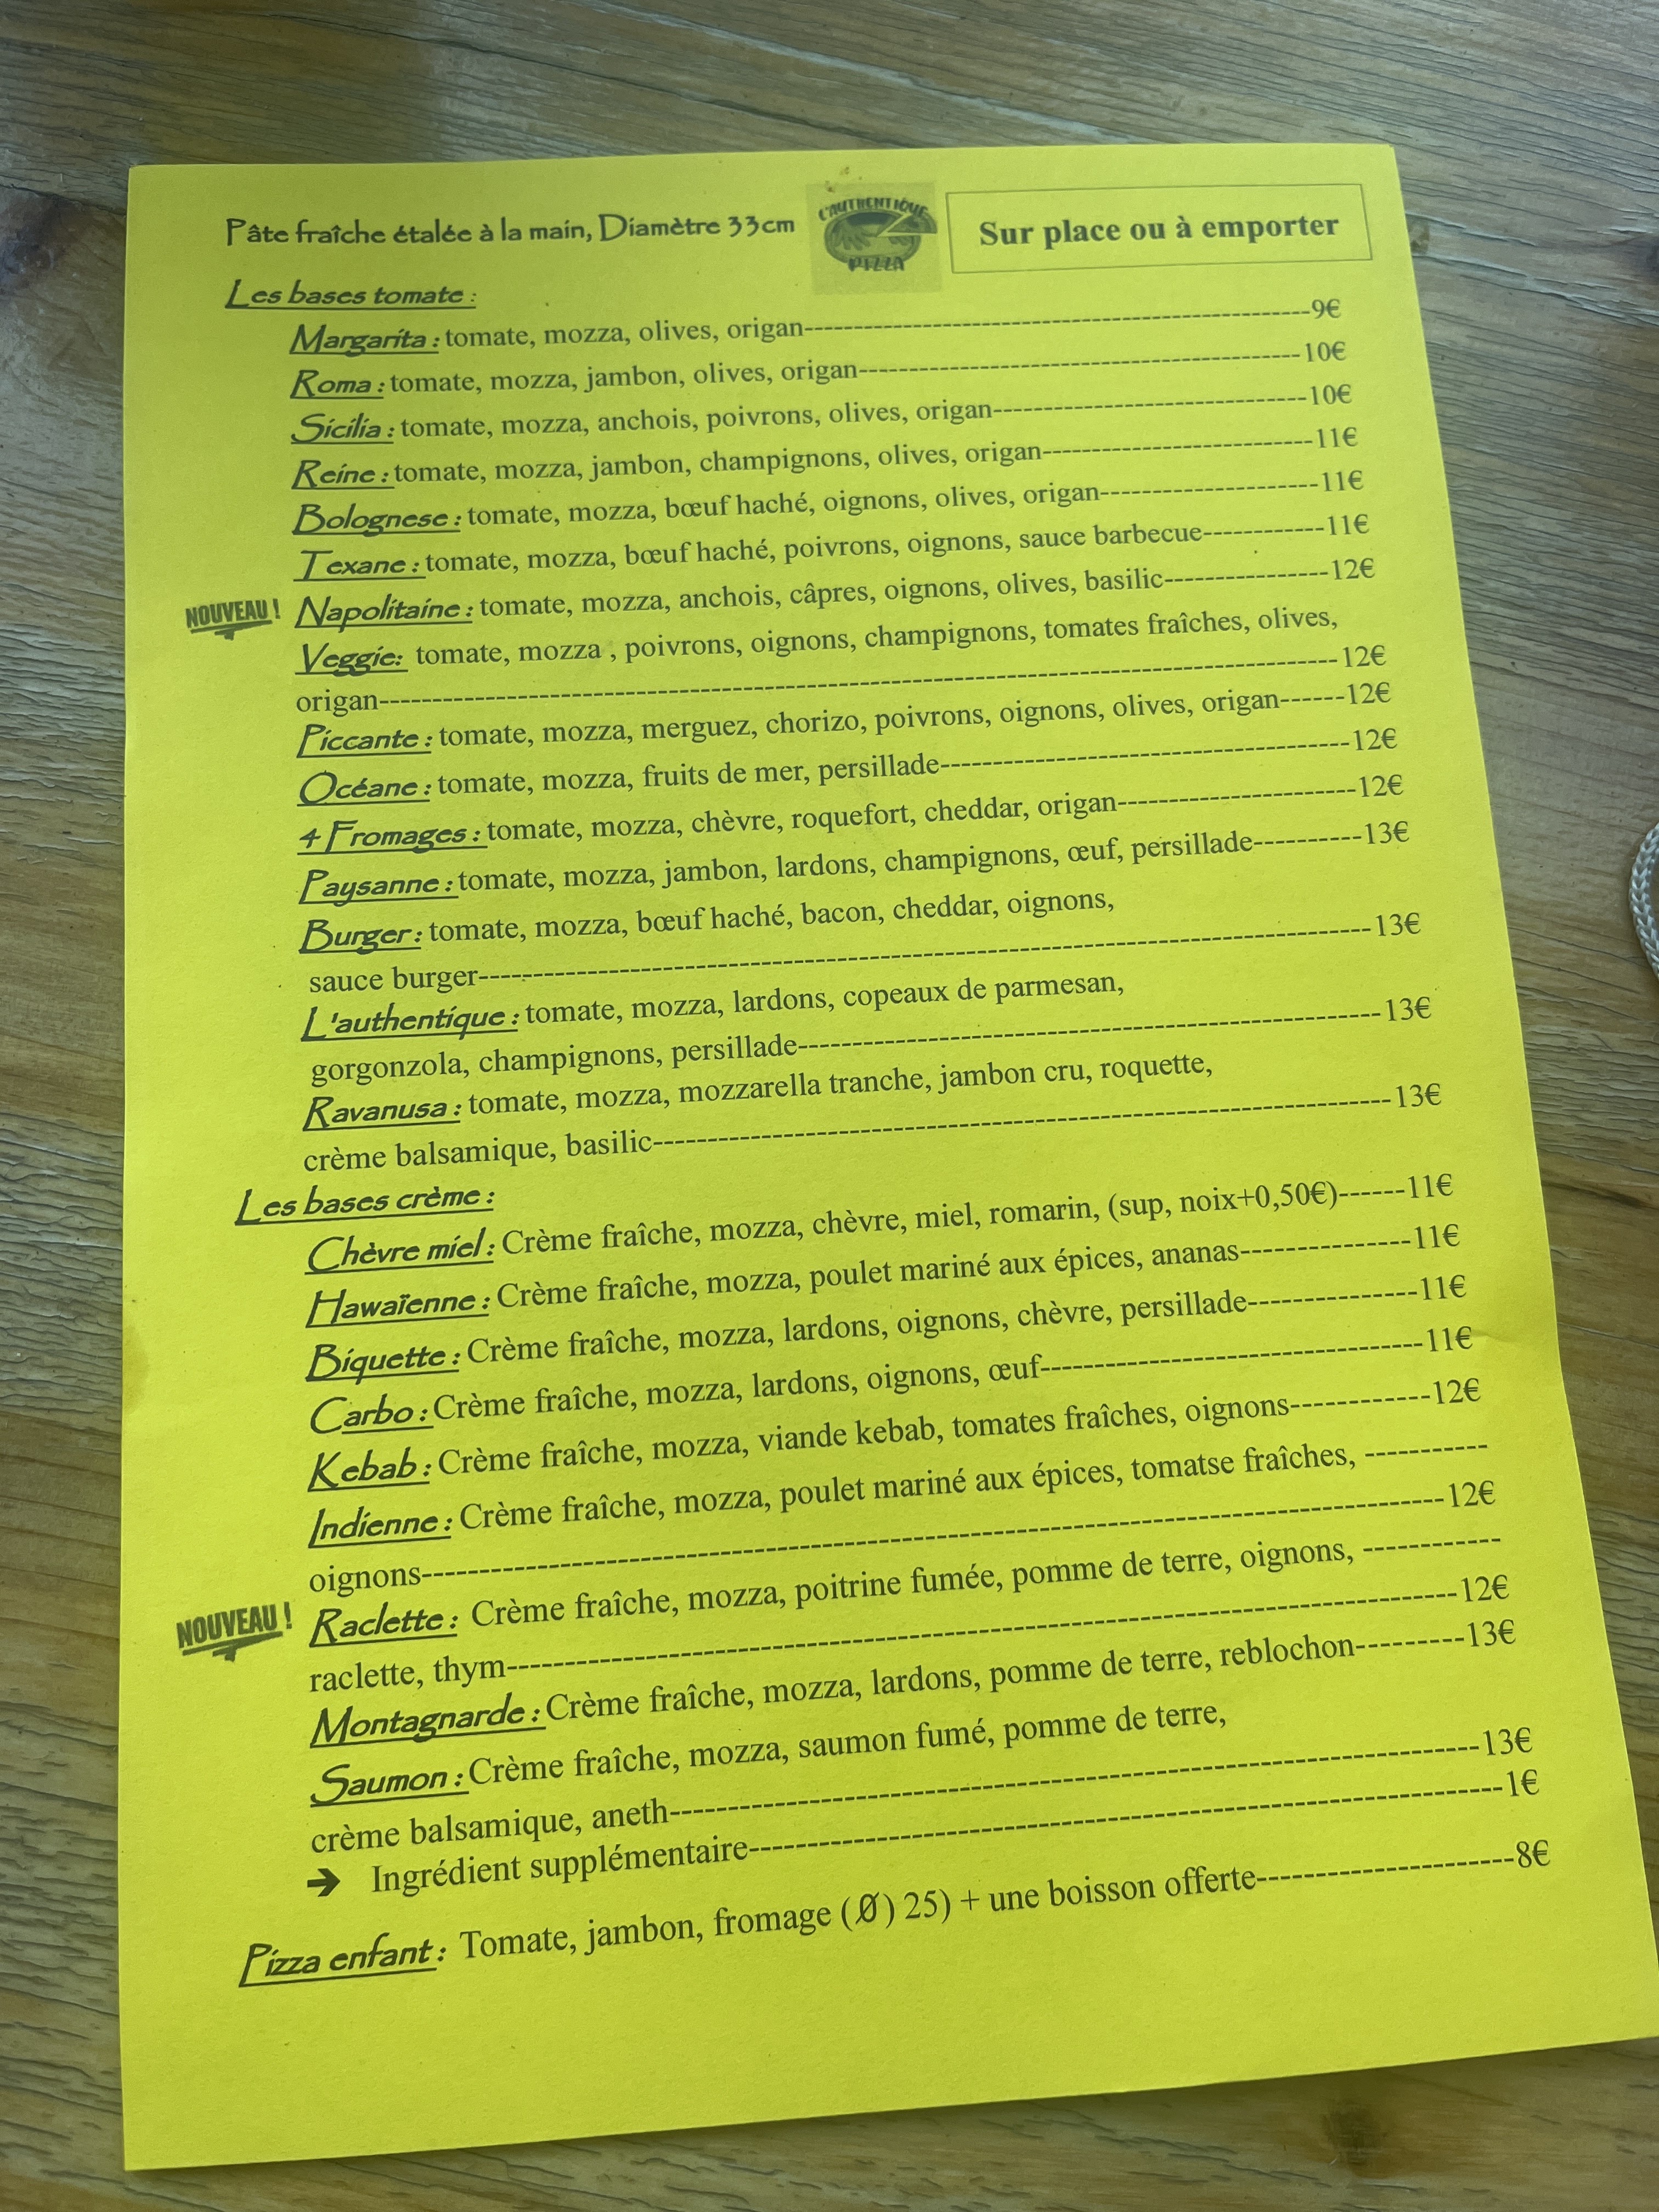 Pâte fraîche étalée à la main, Diamètre 33cm
L'AUTHENTIQUE
PIZZA
Sur place ou à emporter
Les bases tomate :
Margarita : tomate, mozza, olives, origan----------9€
Roma : tomate, mozza, jambon, olives, origan----------10€
Sicilia : tomate, mozza, anchois, poivrons, olives, origan----------10€
Reine : tomate, mozza, jambon, champignons, olives, origan----------11€
Bolognese : tomate, mozza, bœuf haché, oignons, olives, origan----------11€
Texane : tomate, mozza, bœuf haché, poivrons, oignons, sauce barbecue----------11€
NOUVEAU ! Napolitaine : tomate, mozza, anchois, câpres, oignons, olives, basilic----------12€
Veggie: tomate, mozza , poivrons, oignons, champignons, tomates fraîches, olives,
origan----------12€
Piccante : tomate, mozza, merguez, chorizo, poivrons, oignons, olives, origan------12€
Océane : tomate, mozza, fruits de mer, persillade----------12€
4 Fromages : tomate, mozza, chèvre, roquefort, cheddar, origan----------12€
Paysanne : tomate, mozza, jambon, lardons, champignons, œuf, persillade----------13€
Burger : tomate, mozza, bœuf haché, bacon, cheddar, oignons,
sauce burger----------13€
L'authentique : tomate, mozza, lardons, copeaux de parmesan,
gorgonzola, champignons, persillade----------13€
Ravanusa : tomate, mozza, mozzarella tranche, jambon cru, roquette,
crème balsamique, basilic----------13€
Les bases crème :
Chèvre miel : Crème fraîche, mozza, chèvre, miel, romarin, (sup, noix+0,50€)------11€
Hawaïenne : Crème fraîche, mozza, poulet mariné aux épices, ananas----------11€
Biquette : Crème fraîche, mozza, lardons, oignons, chèvre, persillade----------11€
Carbo : Crème fraîche, mozza, lardons, oignons, œuf----------11€
Kebab : Crème fraîche, mozza, viande kebab, tomates fraîches, oignons----------12€
Indienne : Crème fraîche, mozza, poulet mariné aux épices, tomatse fraîches, ----------
oignons----------12€
NOUVEAU ! Raclette : Crème fraîche, mozza, poitrine fumée, pomme de terre, oignons, ----------
raclette, thym----------12€
Montagnarde : Crème fraîche, mozza, lardons, pomme de terre, reblochon---------13€
Saumon : Crème fraîche, mozza, saumon fumé, pomme de terre,
crème balsamique, aneth----------13€
➔ Ingrédient supplémentaire----------1€
Pizza enfant : Tomate, jambon, fromage (Ø) 25) + une boisson offerte----------8€